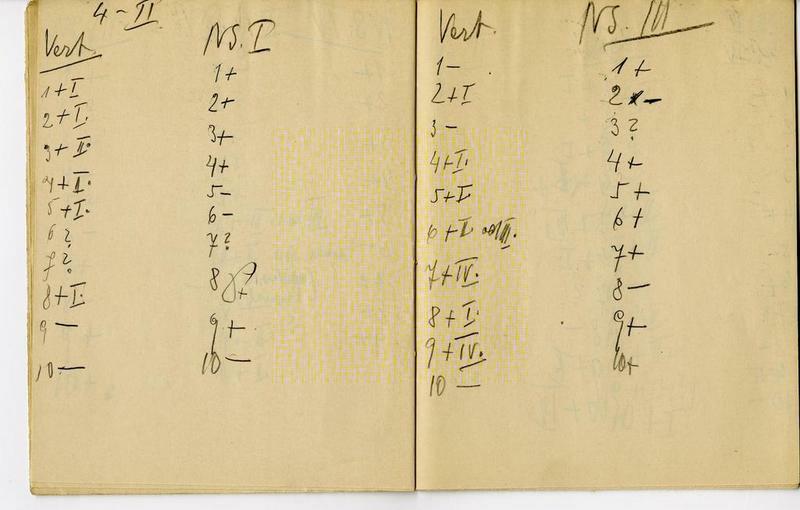 4-II
Vert.
1+I
2+I.
3+II.
4+II.
5+I.
6?
7?
8+I.
9 —
10 —
NS. I
1+
2+
3+
4+
5-
6-
7?
8
9+
10 —
Vert.
1-
2+I
3-
4+I.
5+I.
6+II. III.
7+IV.
8+I.
9+IV.
10 —
NS. III
1+
2 -
3?
4+
5+
6+
7+
8-
9+
10+